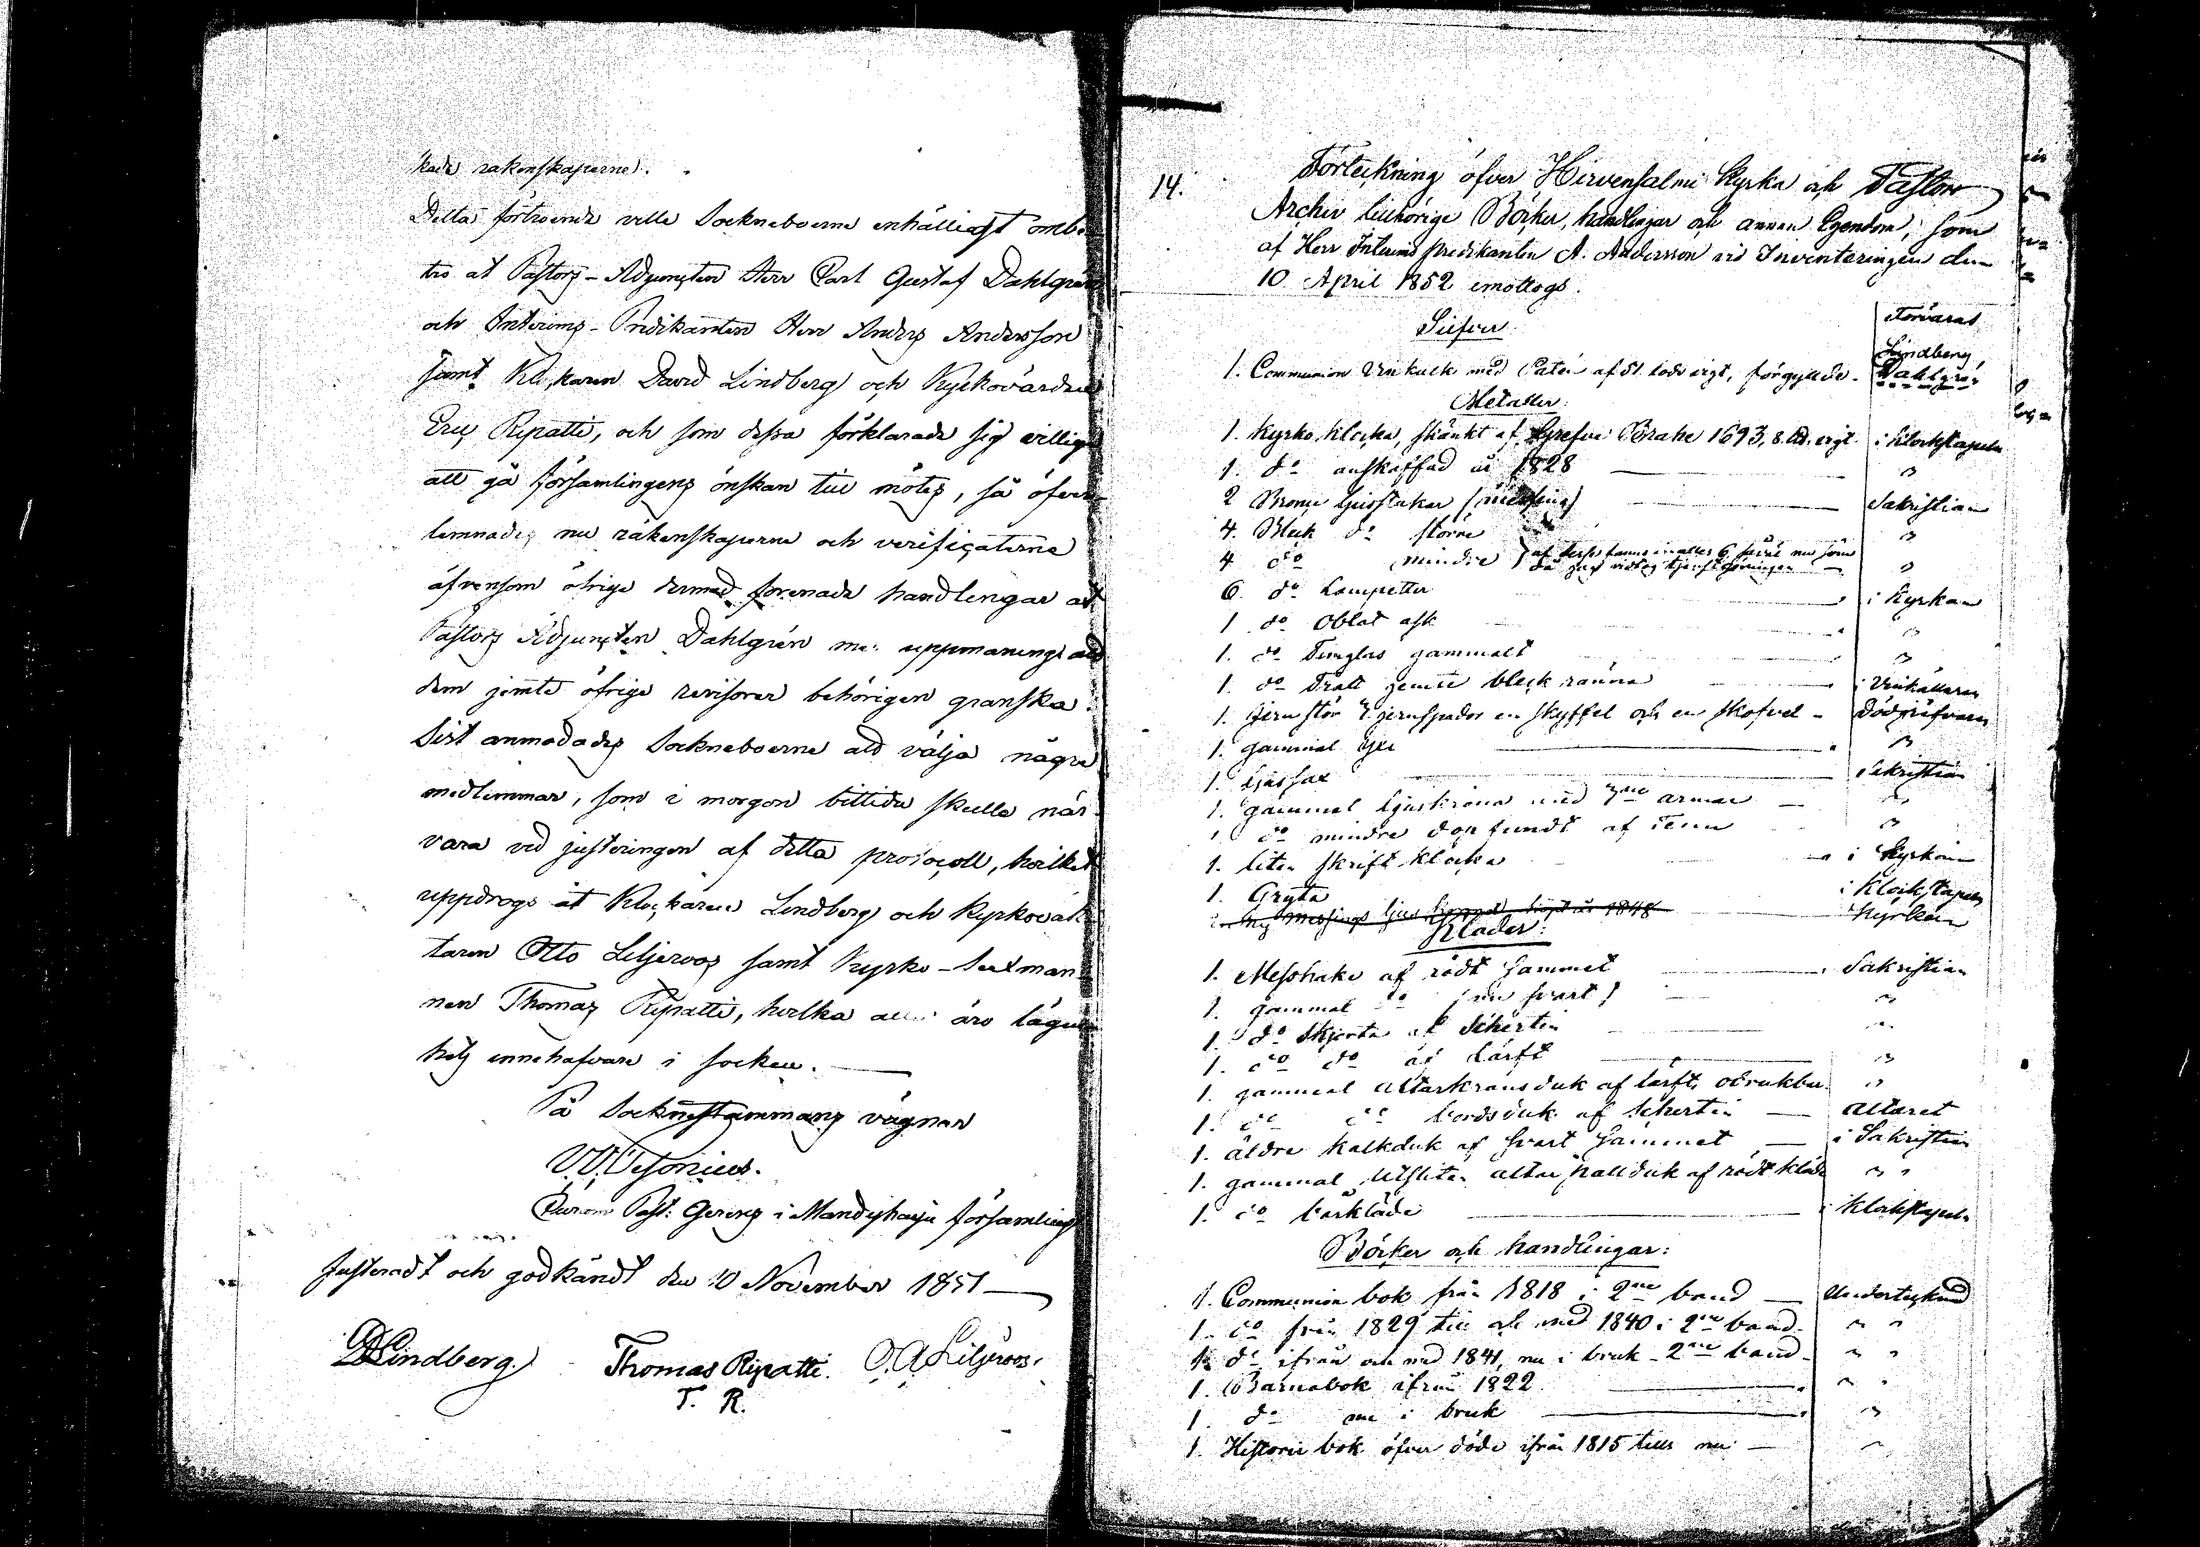 kade räkenskaperne.
Detta förtroende ville Sockneboerne enhälligt ombe-
tro åt Pastors-Adjuncten Herr Carl Gustaf Dahlgrén
och Interims-Predikanten Herr Anders Andersson
samt Klockaren David Lindberg och Kyrkovärden
Eric Ripatti, och som dessa förklarade sig villige
att gå församlingens önskan till mötes, så öfver-
lemnades nu räkenskaperne och verificaterne
äfvensom öfrige dermed förenade handlingar åt
Pastors Adjuncten Dahlgrén med uppmaning att
dem jemte öfrige revisorer behörigen granska.
Sist anmodades Sockneboerne att välja några
medlemmar, som i morgon bittida skulle när-
vara vid justeringen af detta protocoll, hvilket
uppdrogs åt Klockaren Lindberg och Kyrkovak-
taren Otto Liljeroos samt Kyrko-Sexman-
nen Thomas Ripatti, hvilka alla äro lägen-
hets innehafvare i socken.
På Sockenstämmans vägnar
Past: i Mändyharju församling
Justeradt och godkändt den 10 November 1851
D Lindberg. Thomas Ripatti. O. A Liljeroos.
T. R.
14. Förteckning öfver Hirvensalmi Kyrka och Pastors
Archiv tillhörige Böcker, handlingar och annan Egendom, som
af Herr Interims predikanten A. Andersson vid Inventeringen den
10 April 1852 emottogs.
Silfver. Förvaras
Lindberg,
1. Communion Vinkalk med Patén af 51 lods vigt, förgylde. Dahlgrén
Metaller.
1. Kyrko klocka, skänkt af Grefve Brahe 1693, 8. vigt. i Klockstapeln
1. do anskaffad år 1828 "
2 Ljusstakar (messing) Sakristian
4. Bleck do större "
4 do mindre } af dessa fanns inalles 6 "
6. do Lampetter i Kyrkan
1 do Oblat ask "
1. do Timglas gammalt "
1. do Tratt jemte bleck ränna i Vinkällaren
1. jernstör 2 jernspador en skyffel och en skofvel
1. gammal yxa "
1. Ljussax Sakristian
1. gammal Ljuskrona med armar "
1 do mindre dopfundt af Tenn "
1. liten skrift klocka i Kyrkan
1. Gryta i Klockstapeln
messings ljus köpt år 1848 Kyrkan
Kläder:
1. Messhake af rödt Sammet Sakristian
1. gammal do (nu svart) "
1. do Skjorta af Schertin "
1. do do af Lärft "
1. gammal altarkransduk af lärft, obrukbar "
1. do do bordsduk af Schertin altaret
1. äldre kalkduk af svart Sammet i Sakristian
1. gammal utsliten altar duk af rödt kläde " "
1. do bårkläde i Klockstapeln
Böcker och handlingar:
1. Communion bok från 1818 i 2ne band Undertecknad
1. do från 1829 till och med 1840 i 2ne band " "
1. do ifrån och med 1841, nu i bruk 2ne band " "
1. Barnabok ifrån 1822 " "
1. do nu i bruk "
1. Historie bok öfver döde ifrån 1815 tills nu "